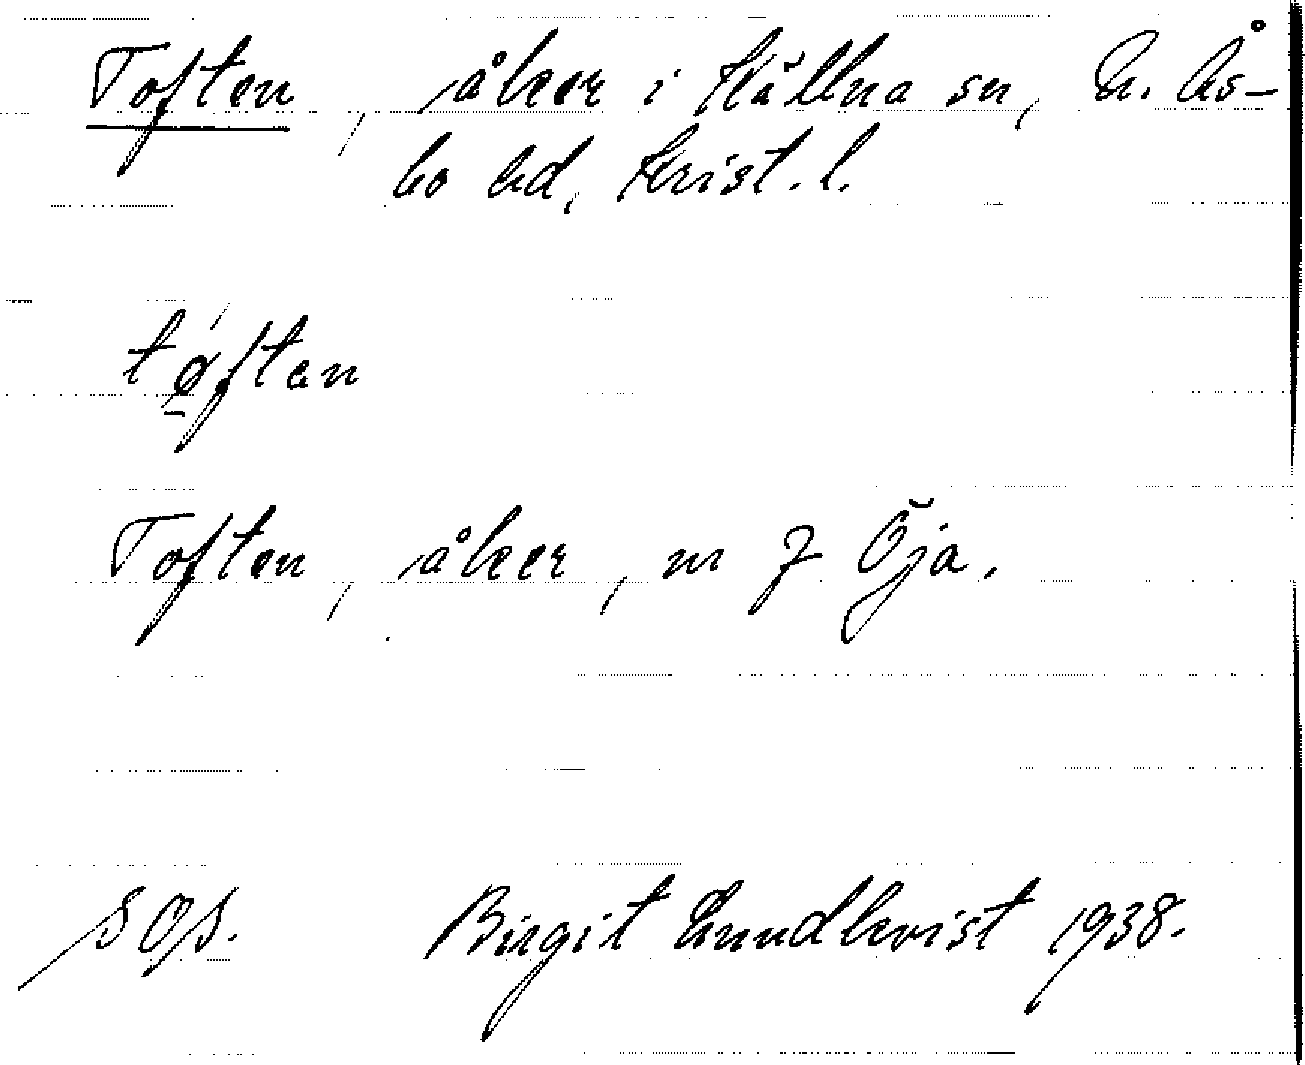 Toften, åker i Källna sn, N. Ås-
bo hd, Krist. l.
tǫ́ften
Toften, åker, nr 7 Öja.
SOS. Birgit Lundkvist 1938.